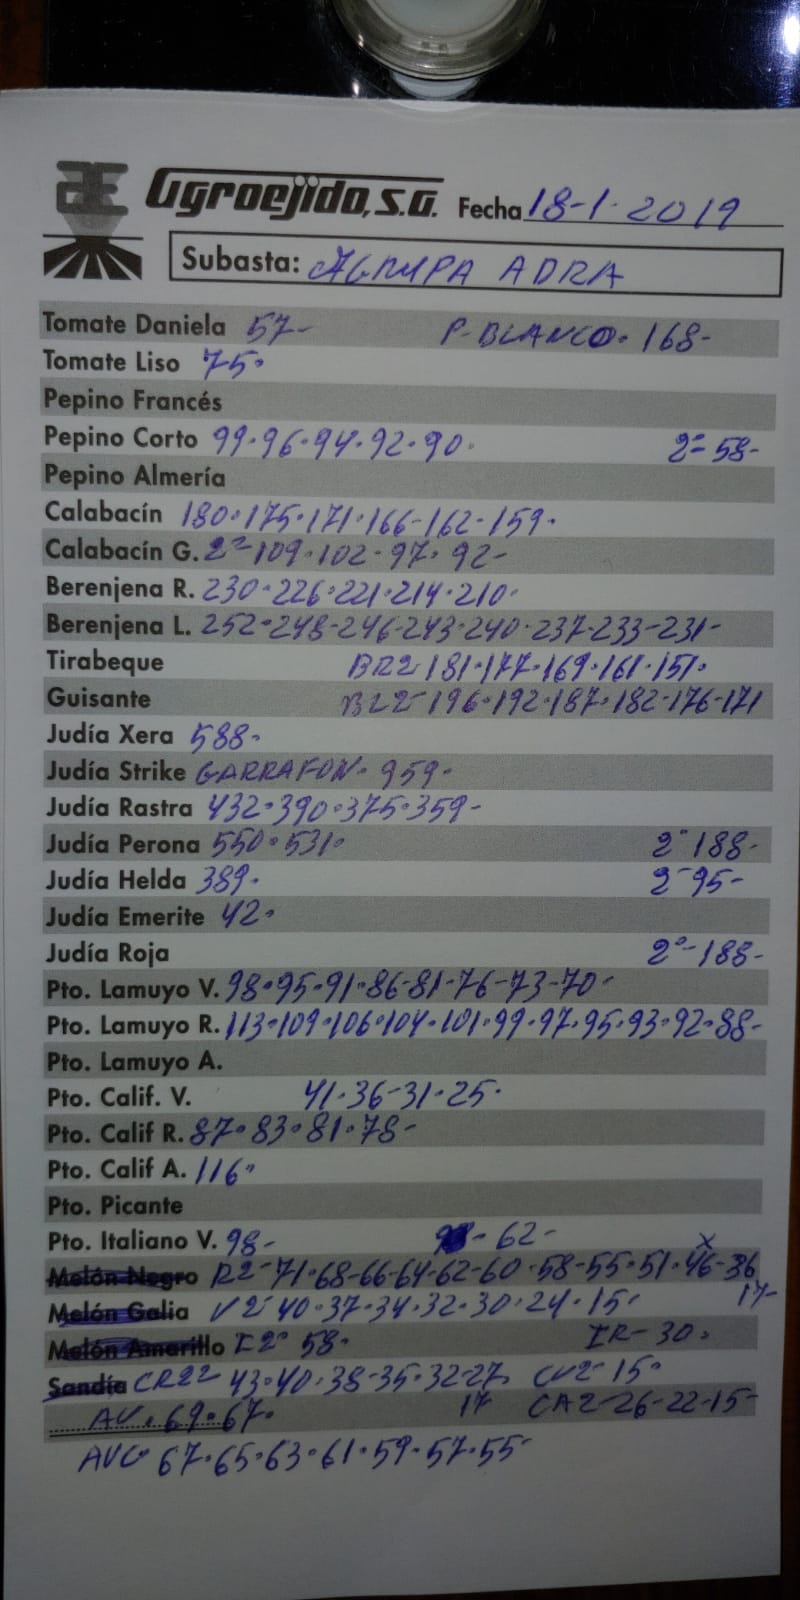 Agroejido, S.A. Fecha 18-1-2019
Subasta: AGRUPA ADRA
Tomate Daniela 57- P-BLANCO. 168-
Tomate Liso 75.
Pepino Francés
Pepino Corto 99.96.94.92.90. 2ª 58-
Pepino Almería
Calabacín 180.175.171.166-162-159.
Calabacín G. 2ª 109.102-97.92-
Berenjena R. 230.226.221.214.210.
Berenjena L. 252.248-246-243.240.237-233-231-
Tirabeque BR2 181.177.169.161.151.
Guisante BL2 196.192.187.182-176-171
Judía Xera 588-
Judía Strike GARRAFON. 959-
Judía Rastra 432.390.375.359-
Judía Perona 550.531. 2ª 188-
Judía Helda 389. 2ª 95-
Judía Emerite 42.
Judía Roja 2ª-188-
Pto. Lamuyo V. 98.95.91.86-81-76-73-70-
Pto. Lamuyo R. 113.109.106.104.101.99.97.95.93.92.88-
Pto. Lamuyo A.
Pto. Calif. V. 41.36-31.25.
Pto. Calif R. 87.83.81.78-
Pto. Calif A. 116.
Pto. Picante
Pto. Italiano V. 98- - 62-
Melón Negro R2-71.68-66-64-62-60.58-55.51.46-36
17-
Melón Galia V2 40.37.34.32.30.24.15.
Melón Amarillo I2ª 58. IR-30.
Sandía CR2ª 43.40.38-35.32-27. CV2-15.
17
AV. 69.67. CA2-26-22-15-
AVC 67.65.63.61.59.57.55-